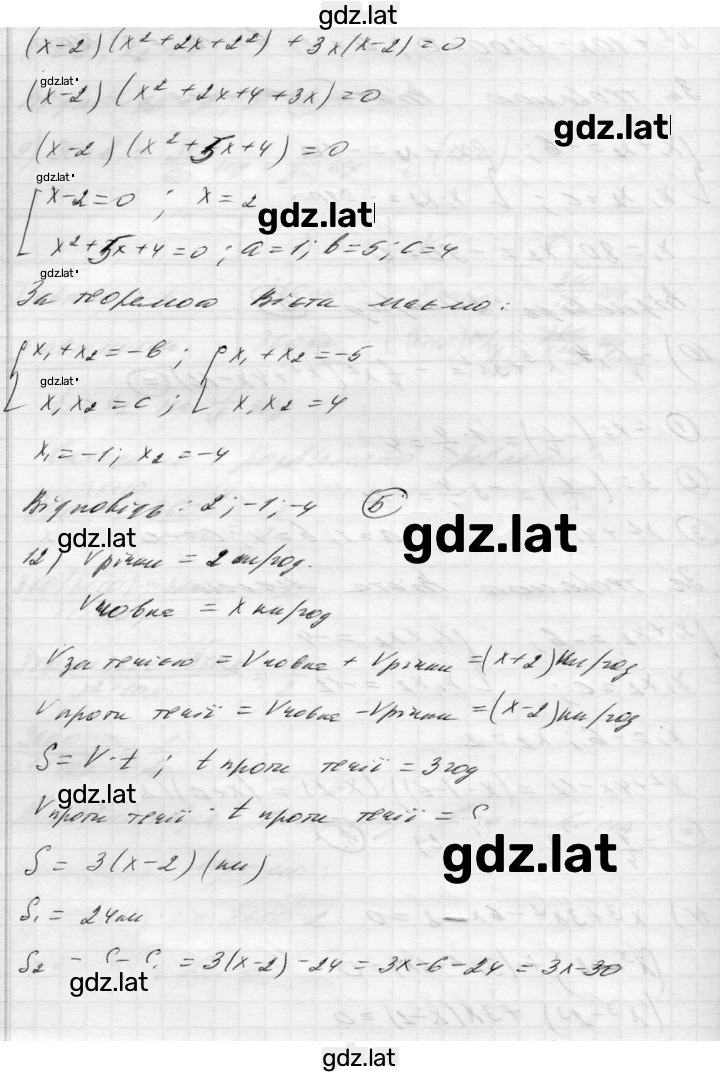 gdz.lat
(x-2)(x²+2x+2²)+3x(x-2)=0
gdz.lat
(x-2)(x²+2x+4+3x)=0
gdz.lat
(x-2)(x²+5x+4)=0
x-2=0; x=2
gdz.lat
x²+5x+4=0; a=1; b=5; c=4
gdz.lat
За теоремою Вієта маємо:
x₁+x₂=-b; x₁+x₂=-5
gdz.lat
x₁x₂=c; x₁x₂=4
x₁=-1; x₂=-4
Відповідь: 2; -1; -4 Б
gdz.lat
gdz.lat
12) Vрічки = 2 км/год.
Vчовна = x км/год
Vза течією = Vчовна + Vрічки = (x+2) км/год
Vпроти течії = Vчовна - Vрічки = (x-2) км/год
S=V·t; t проти течії = 3 год
gdz.lat
Vпроти течії · t проти течії = S
gdz.lat
S = 3(x-2) (км)
S₁ = 24 км
S₂ = S-S₁ = 3(x-2)-24 = 3x-6-24 = 3x-30
gdz.lat
gdz.lat